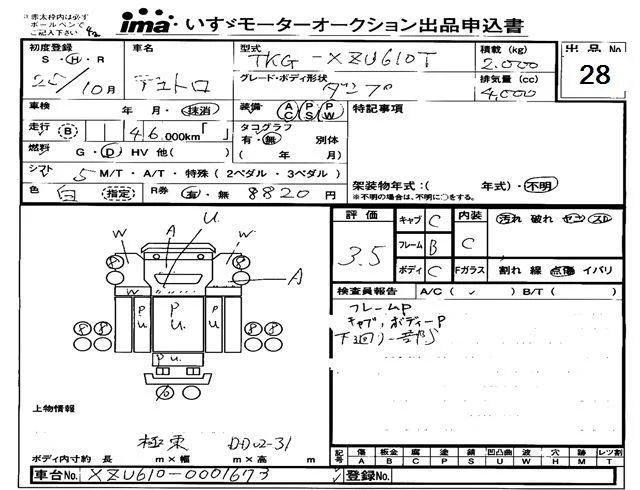 ※赤太枠内は必ず
ボールペンで
ご記入下さい
ima いすゞモーターオークション出品申込書
初度登録 車名 型式 TKG-XZU610T 積載(kg) 2,000 出品No.
S・H・R 25/10月 デュトロ グレード・ボディ形状 ダンプ 排気量(cc) 4,000 28
車検 年 月・抹消 装備 AC PS PW 特記事項
走行 B 146,000km「 」 タコグラフ 有・無 別体
燃料 G・D HV 他( ) ( 年 月)
シフト 5 M/T・A/T・特殊(2ペダル・3ペダル)
色 白 指定 R券 有・無 8820円 架装物年式:( 年式)・不明
※不明の場合は、不明に○をする。
評価 3.5 キャブ C 内装 C 汚れ 破れ ヤケ スレ
フレーム B
ボディ C Fガラス 割れ 線 点傷 イバリ
検査員報告 A/C( ✓ ) B/T( )
フレームP
キャブ、ボディーP
下廻り一部S
U
W A W
8 8
A
W W
P U P U P U
8 8 8 8
P U
上物情報
極東 DD02-31
ボディ内寸約 長 m×幅 m×高 m
記号 傷 板金 腐 塗 錆 凹凸曲 波 穴 跡 レツ割
A B C P S U W H M T
車台No. XZU610-0001673 登録No.